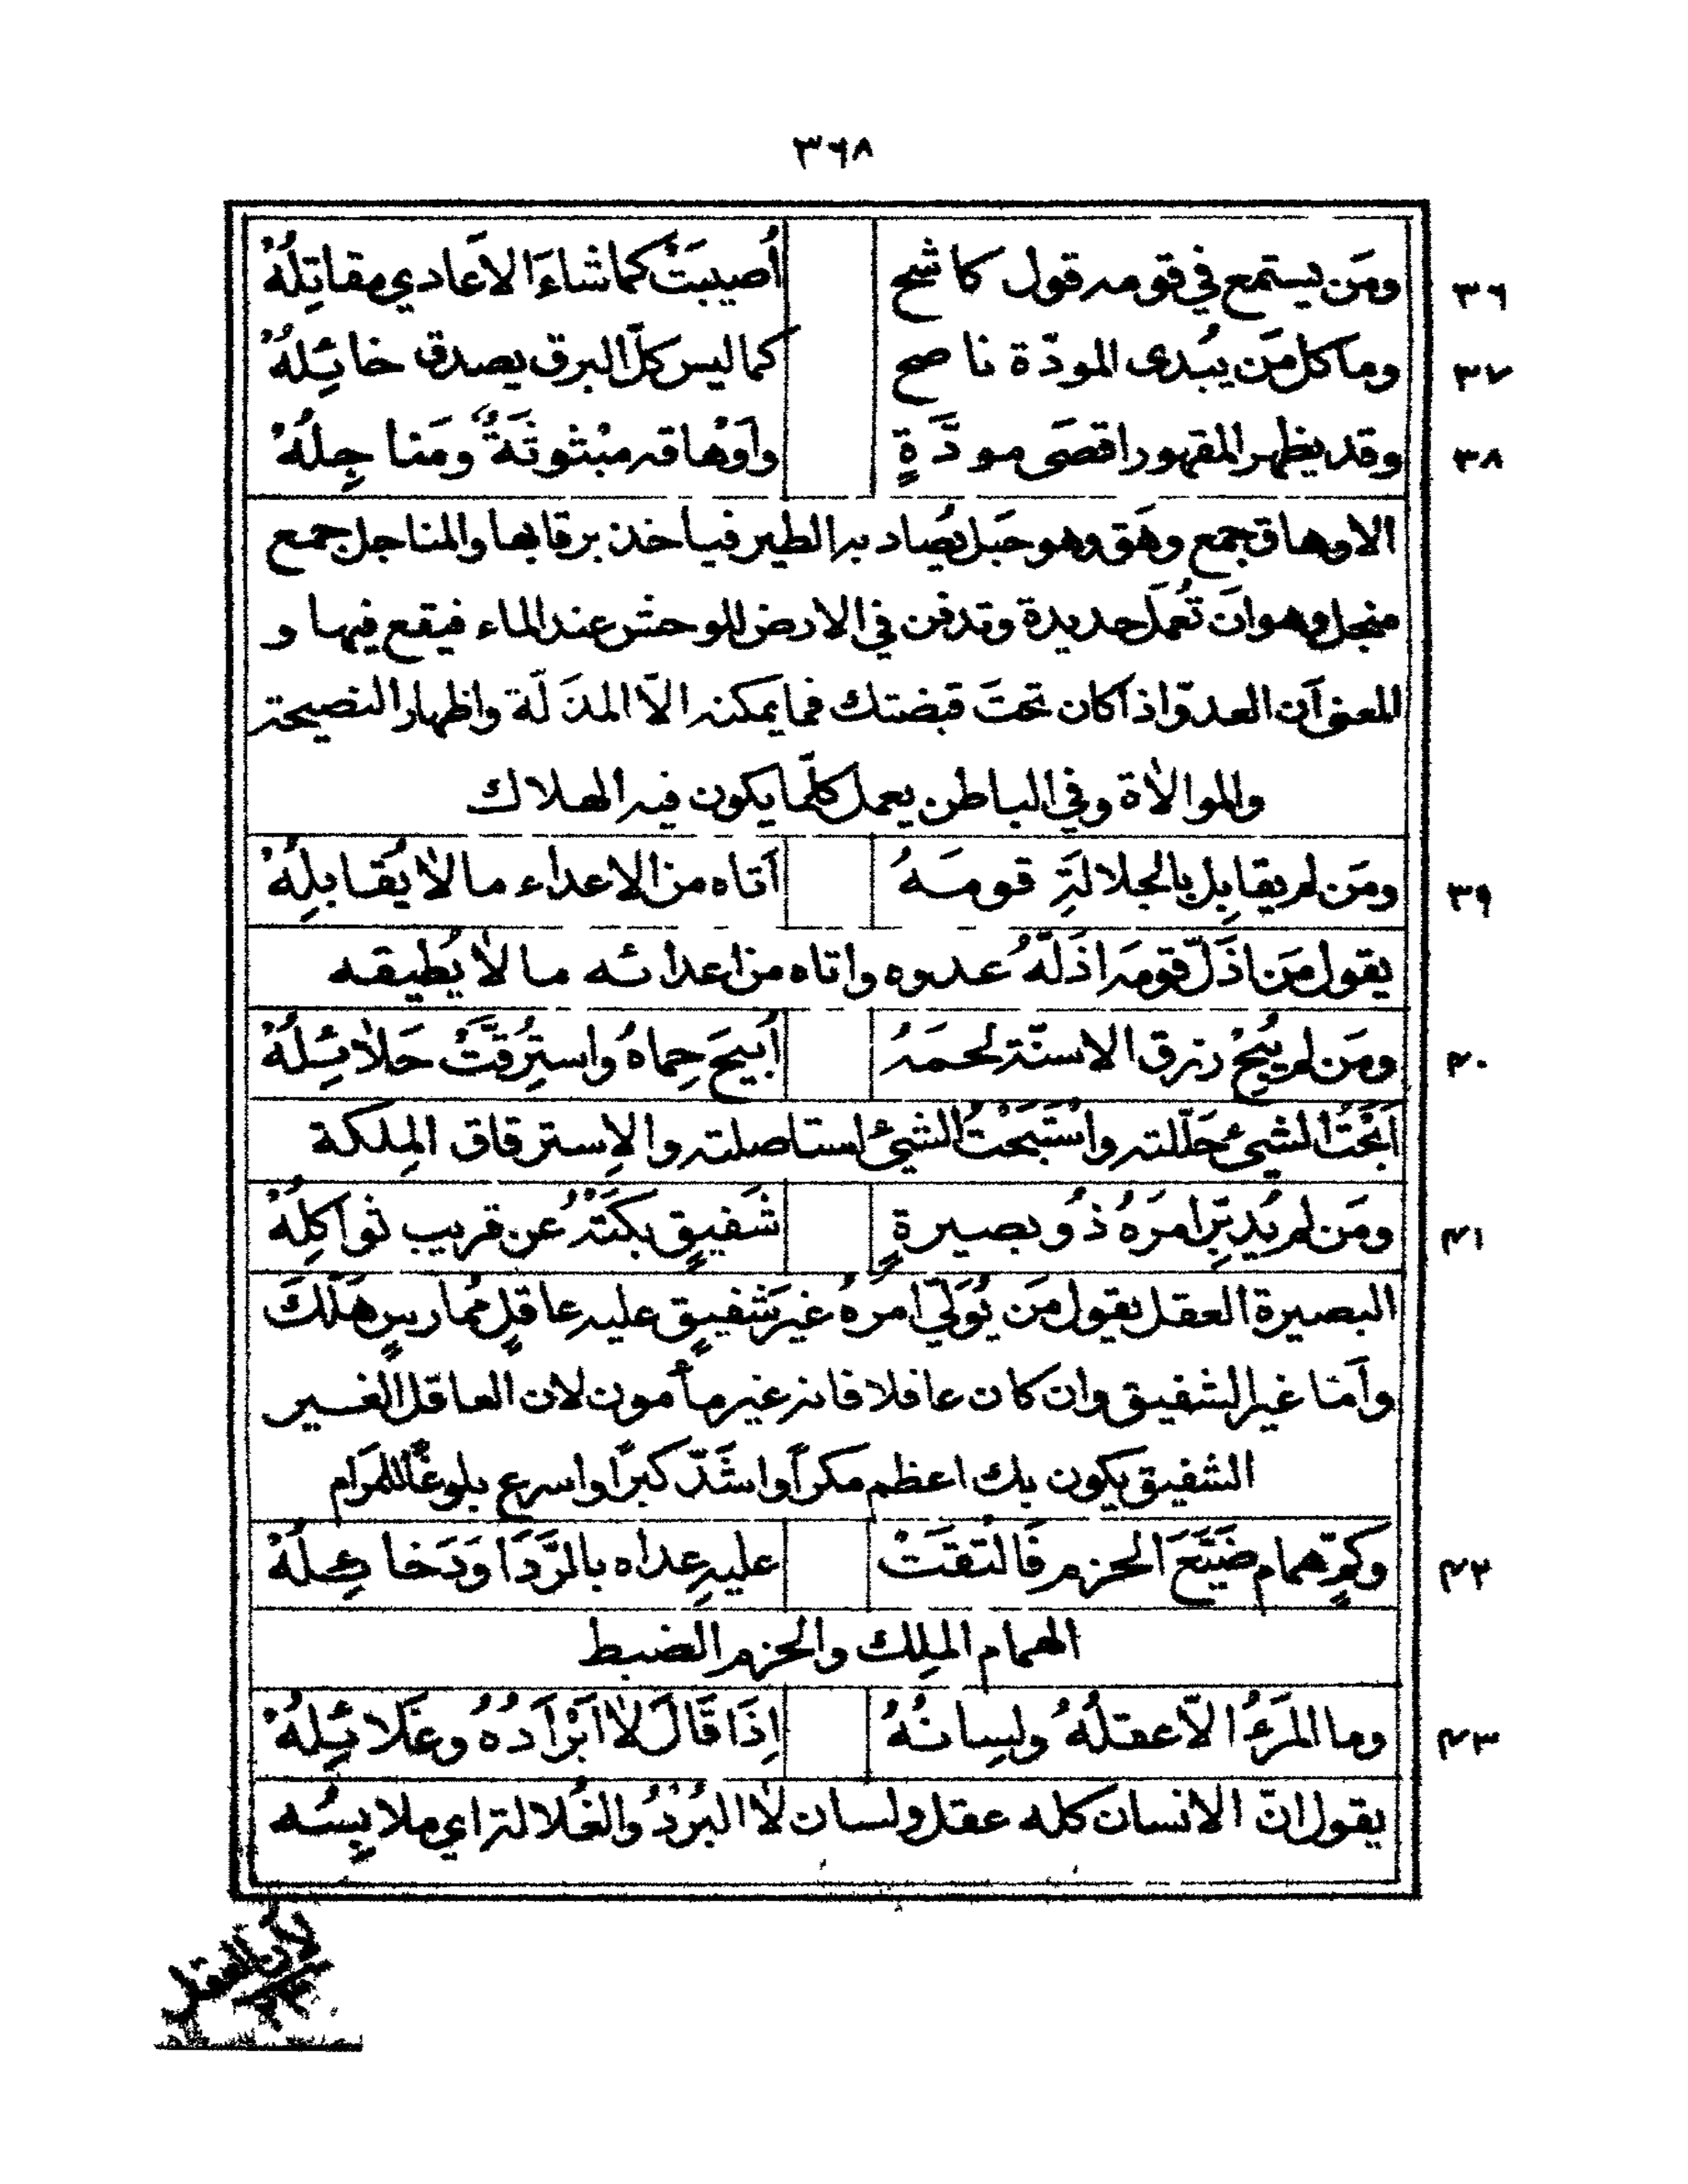 ٣٦٨
٣٦ ومَن يستمع في قومه قول كاشح أُصيبَتْ كما شاءَ الأعادي مقاتِلُهْ
٣٧ وما كل مَن يبُدى المودّة ناصح كما ليس كلّ البرق يصدق خائِلُهْ
٣٨ وقد يظهر المقهور اقصَى مودَّةٍ وأَوْهاقه مبْثوثَةٌ ومَناجِلُهْ
الاوهاق جمع وهَق وهو حَبل يُصاد به الطير فيأخذ برقابها والمناجل جمع
منجل وهو انَ تُعمَل حديدة وتدفن في الارض للوحش عند الماء فيقع فيها و
المعنى اَن العدوّ اذا كان تحتَ قبضتك فما يمكنه الّا المذلّة واظهار النصيحة
والموالاة وفي الباطن يعمل كلّما يكون فيه الهلاك
٣٩ ومَن لم يقابِل بالجلالةِ قومَهُ اَتاه من الاعداء ما لا يُقابلِهُْ
يقول مَن اذَلّ قومَه اذَلّهُ عدوه واتاه من اعدائه ما لا يُطيقه
٤٠ ومَن لم يُبِحْ رزق الاسنّة لحمَهُ أُبيحَ حِماهُ واستُرِقَّتْ حَلائِلُهْ
اَبَحْتُ الشيئ حَلّلته واسْتَبَحْتُ الشيئ استاصلته والإسترقاق المِلكة
٤١ ومَن لم يُدبِّر امرَهُ ذُو بصيرةٍ شَفيقٍ بكَتْهُ عن قريب ثواكِلُهْ
البصيرة العقل يقول مَن يُوَلّي امرهُ غيرَ شَفيقٍ عليه عاقلٍ مُمارسٍ هَلَكَ
وأَمّا غير الشفيق وان كان عاقلا فانه غير مأمون لان العاقل الغير
الشفيق يكون بك اعظم مكراً واشَدّ كبرًا واسرع بلوغًا للمرَام
٤٢ وكم همام ضَيَّعَ الحزم فَالْتقَتْ عليهِ عداه بالرَّدَا وَدَخائِلُهْ
الهمام الملِك والحزم الضبط
٤٣ وما المَرءُ الّا عقلُهُ ولسِانُهُ اِذَا قَالَ لَا اَبْرَادُهُ وغَلائِلُهْ
يقول انّ الانسانَ كله عقل ولسان لا البُرْدُ والغُلالة اي ملابِسُه
لأن العقل